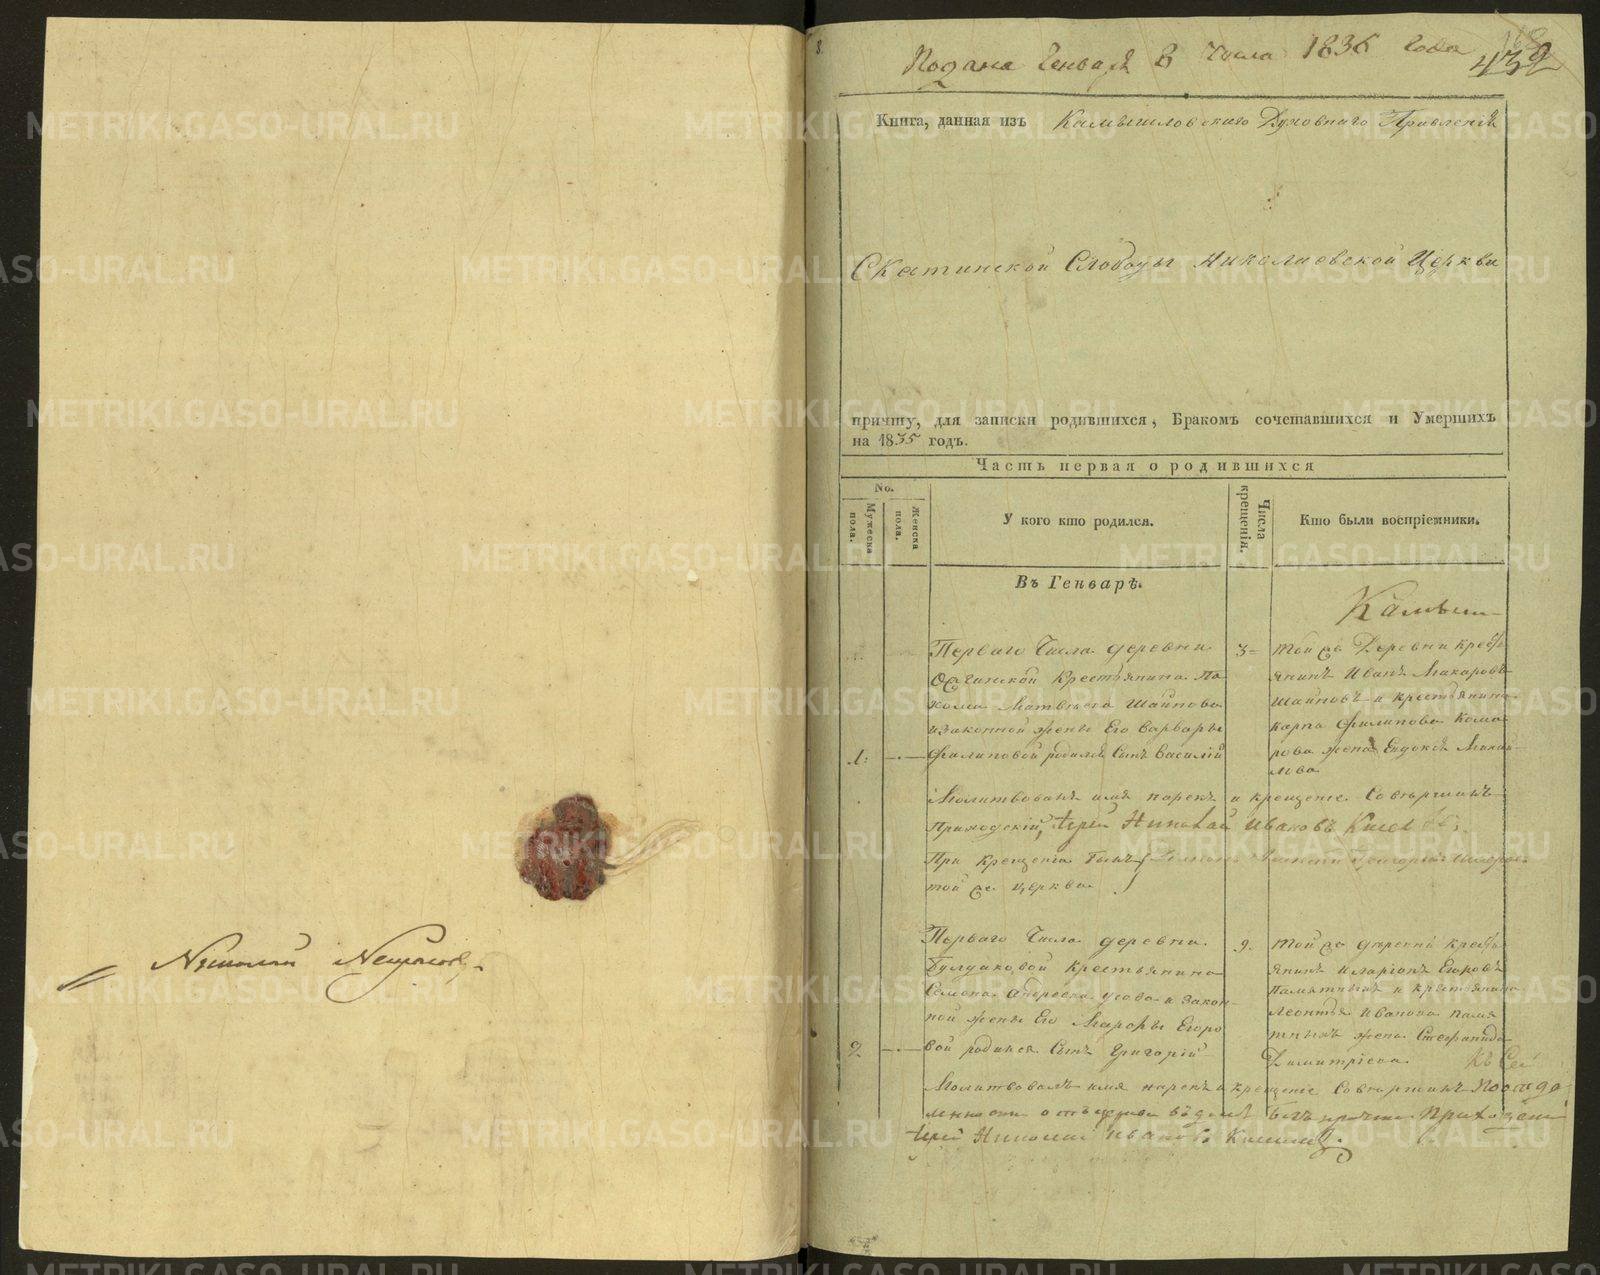 Николай Некрасовъ
8.
Подана Генваря 8 Числа 1836 Года
432
Книга, данная изъ Камышловскаго Духовнаго Правленія
Скатинской Слободы Николаевской Церкви
причту, для записки родившихся, Бракомъ сочетавшихся и Умершихъ
на 1835 годъ.
Часть первая о родившихся
No.
Мужеска пола.
Женска пола.
У кого кто родился.
Числа крещенія.
Кто были воспріемники.
Въ Генварѣ.
Камыш-
Перваго Числа деревни
Крестьянина Па
хома Матвѣева Шаипова
и законной жены Его Варвары
1. Филиповой родился Сынъ Василій
3
той же Деревни кресть
янинъ Иванъ Макаровъ
Шаиповъ и крестьянина
карпа Филипова Кома
рова жена Евдокія Михай
лова
Молитвовалъ имя нарекъ и крещеніе Совершилъ
Приходскій Іерей Николай Ивановъ
При Крещеніи былъ
той же церкви
Перваго Числа деревни
Булдаковой Крестьянина
Семена Андреева усова и закон
ной жены Его Марѳы Егоро
2. вой родился Сынъ Григорій
9.
той же деревни кресть
янинъ иларіонъ Егоровъ
Памятныхъ и крестьянина
Леонтья Иванова Памя
тныхъ жена Стефанида
Димитріева
Къ Сей
Молитвовалъ имя нарекъ и крещеніе Совершилъ
Іерей Николай Ивановъ
METRIKI.GASO-URAL.RU